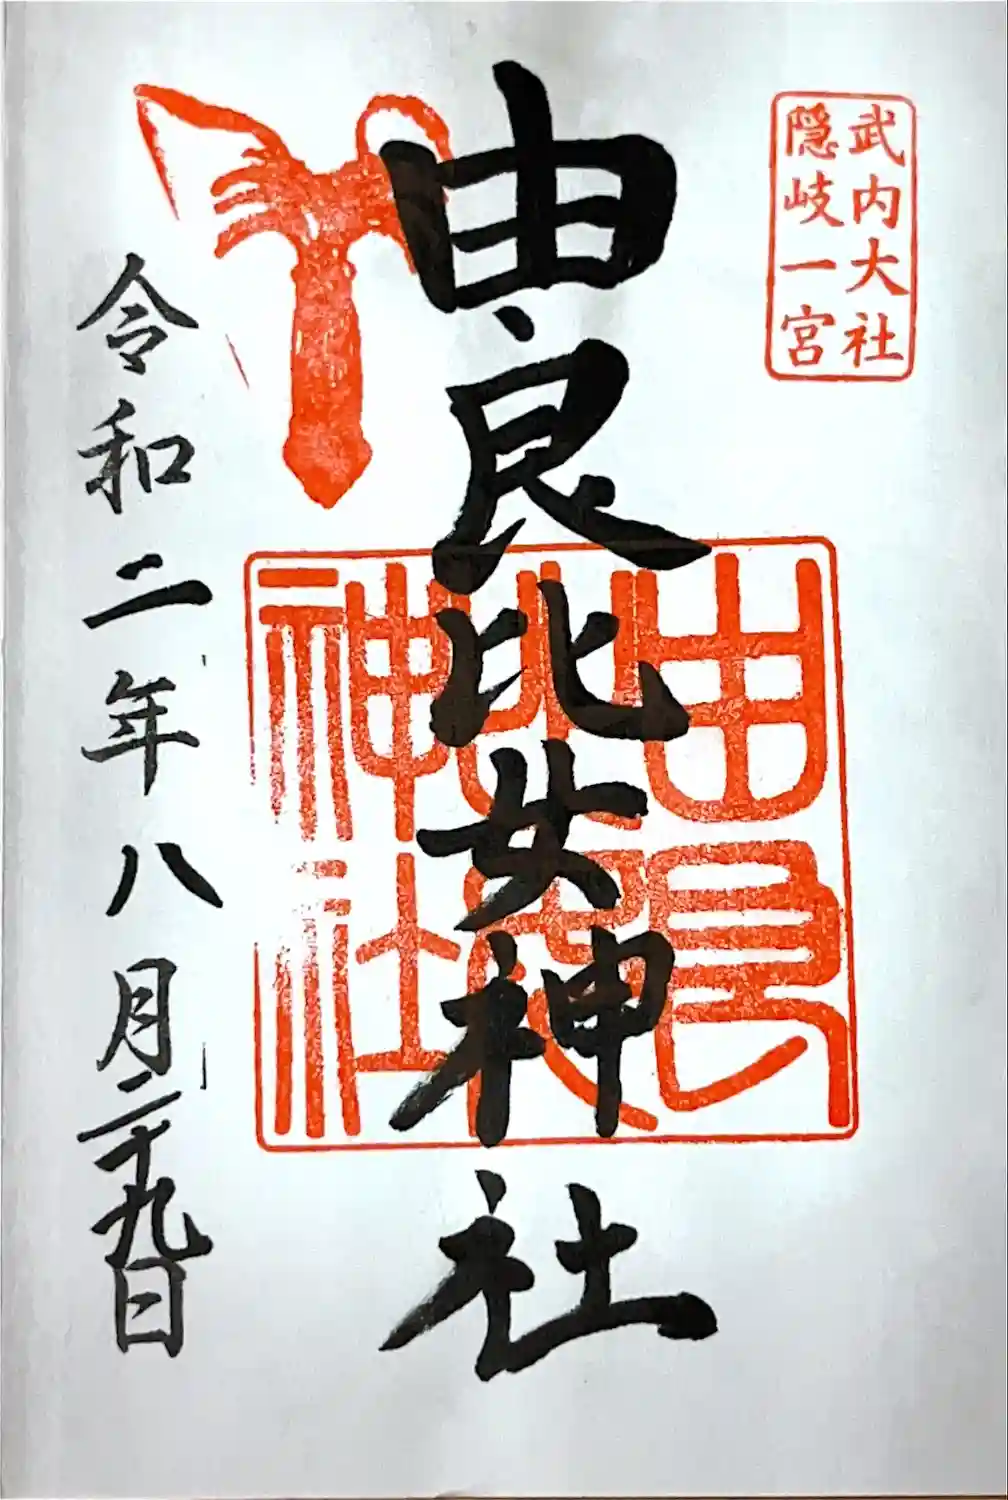 武内大社
隠岐一宮
由良比女神社
由良
比女
神社
令和二年八月二十九日